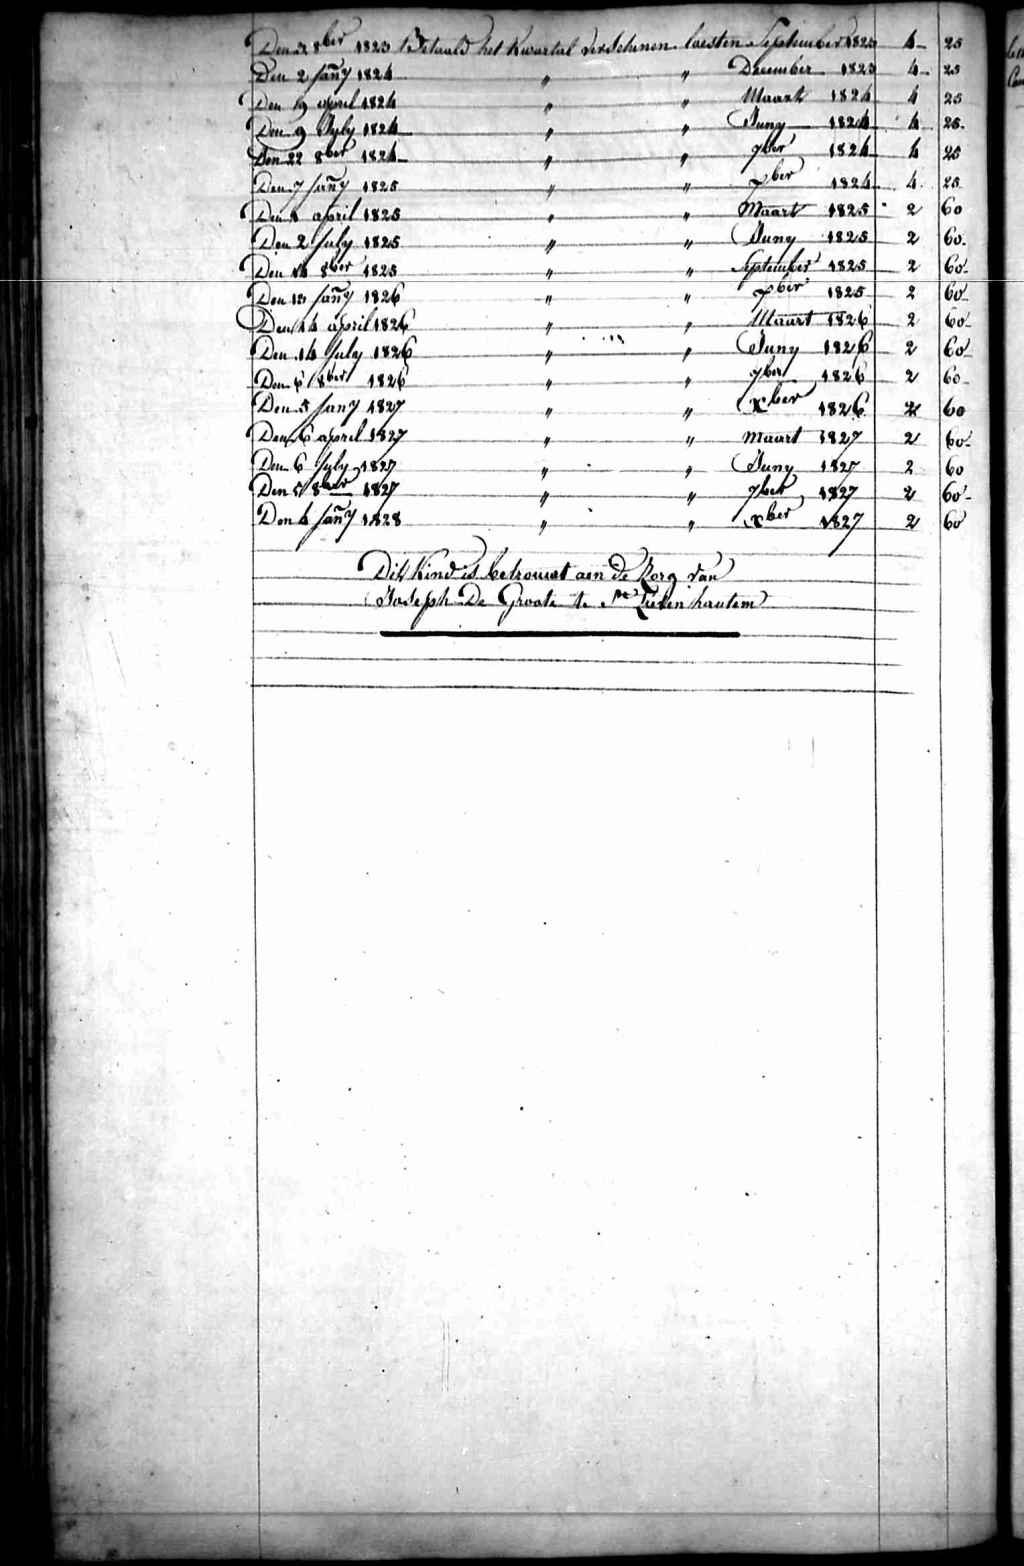 Den 3 8ber 1823 Betaald het Kwartal verschenen laesten September 1823 4 25
Den 2 Jany 1824 " " December 1823 4 25
Den 9 april 1824 " " Maart 1824 4 25
Den 9 July 1824 " " Juny 1824 4 25
Den 22 8ber 1824 " " 7ber 1824 4 25
Den 7 Jany 1825 " " xber 1824 4 25
Den 8 april 1825 " " Maart 1825 2 60
Den 2 July 1825 " " Juny 1825 2 60
Den 8ber 1825 " " September 1825 2 60
Den 13 Jany 1826 " " xber 1825 2 60
Den 14 april 1826 " " Maart 1826 2 60
Den 14 July 1826 " " Juny 1826 2 60
Den 6 8ber 1826 " " 7ber 1826 2 60
Den 5 Jany 1827 " " xber 1826 2 60
Den 6 april 1827 " " maart 1827 2 60
Den 6 July 1827 " " Juny 1827 2 60
Den 5 8ber 1827 " " 7ber 1827 2 60
Den 4 Jany 1828 " " xber 1827 2 60
Dit Kind is betrouwt aen de Zorg van
Joseph De Groote te Ste Lievenhautem